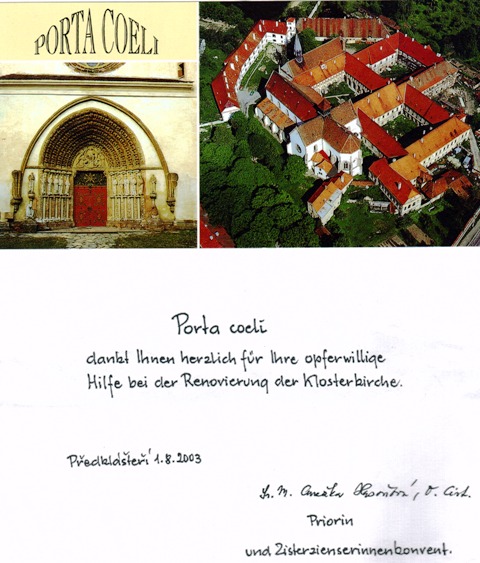 PORTA COELI
Porta coeli
dankt Ihnen herzlich für Ihre opferwillige
Hilfe bei der Renovierung der Klosterkirche.
Předklášteří 1.8.2003
Sr. M. Anežka O. Cist.
Priorin
und Zisterzienserinnenkonvent.